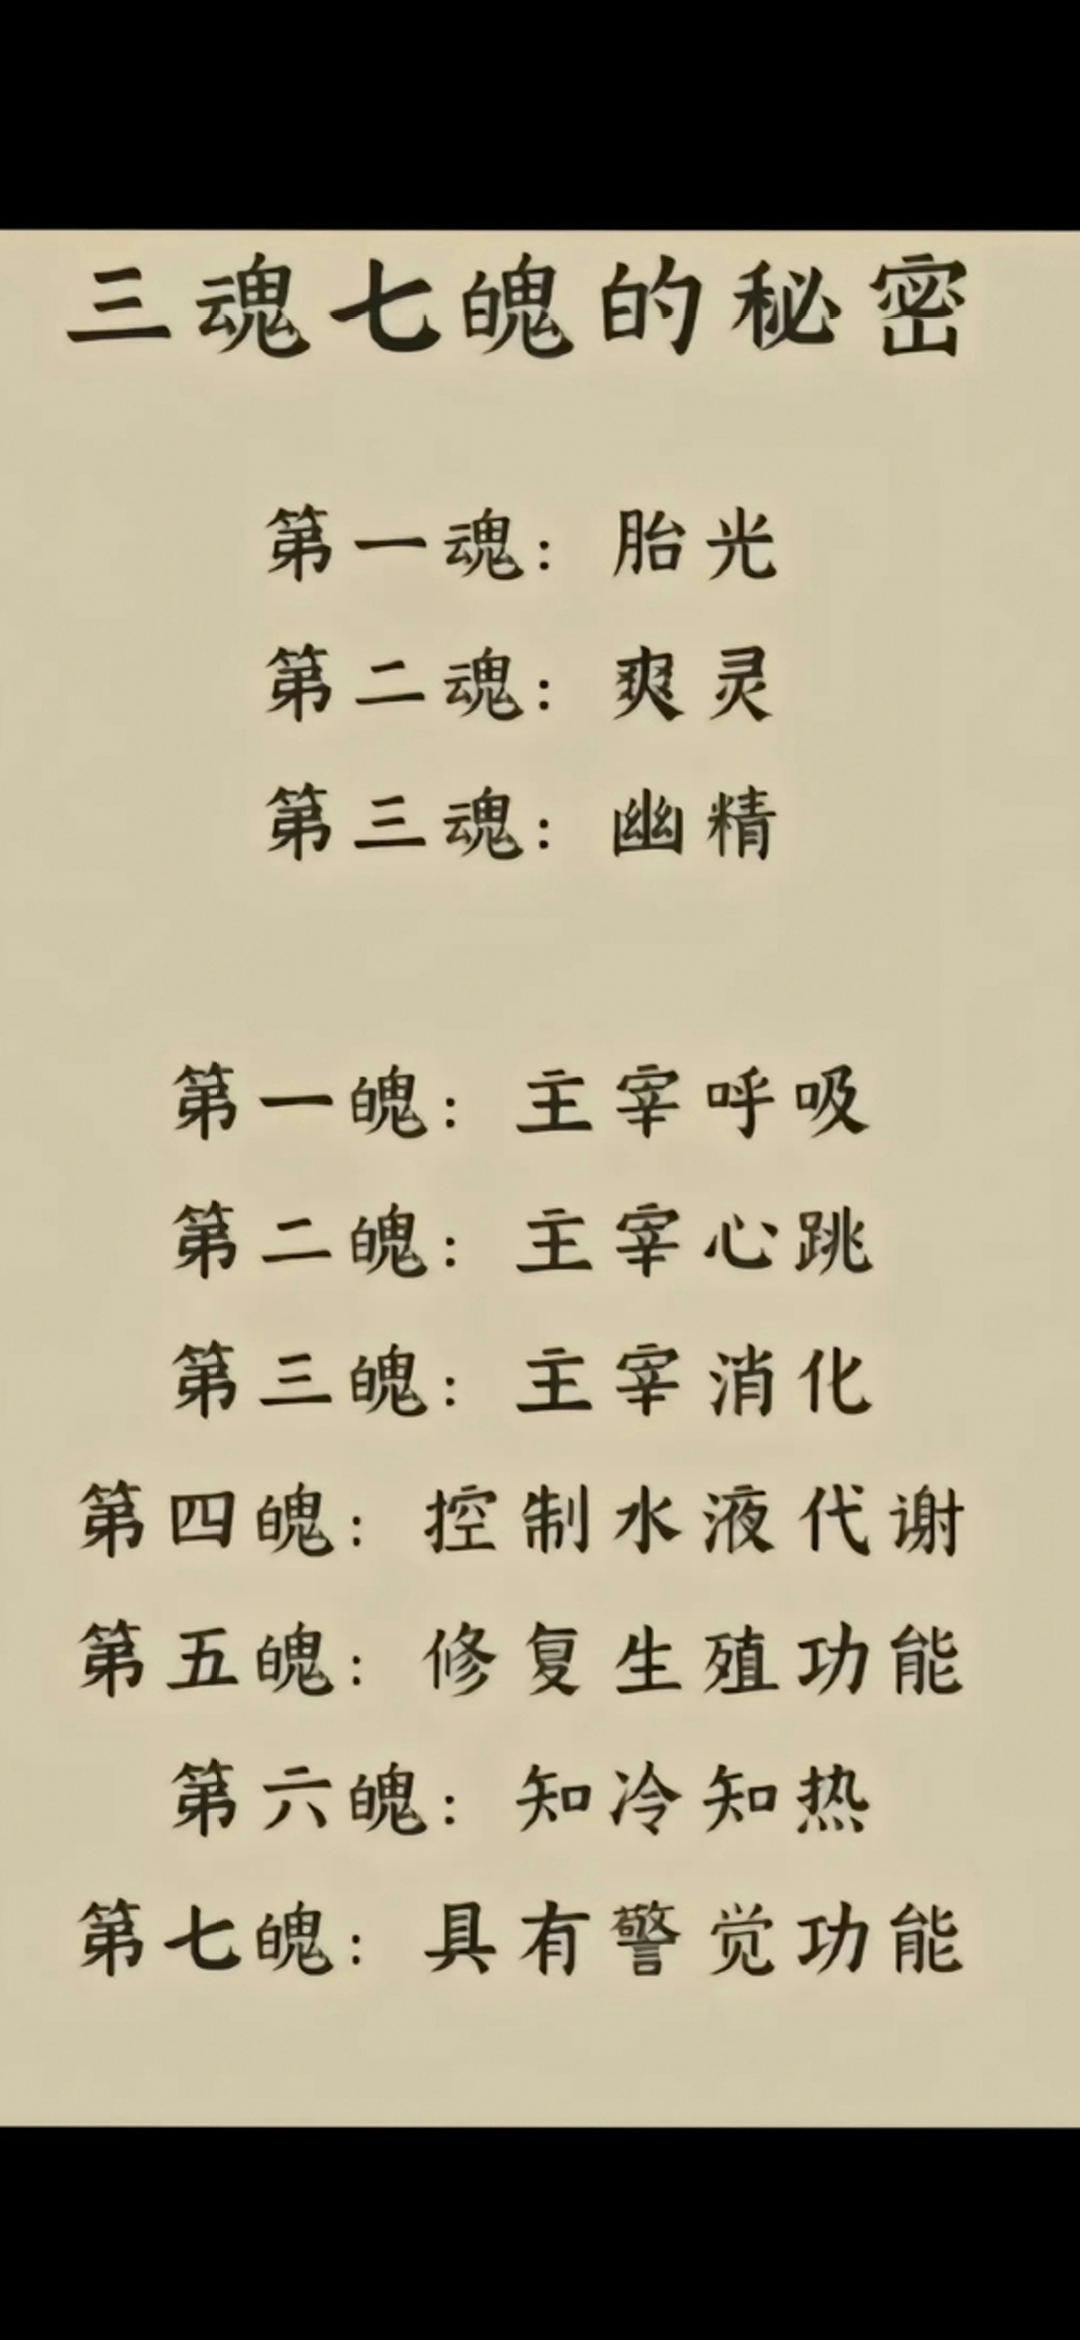 三魂七魄的秘密
第一魂：胎光
第二魂：爽灵
第三魂：幽精
第一魄：主宰呼吸
第二魄：主宰心跳
第三魄：主宰消化
第四魄：控制水液代谢
第五魄：修复生殖功能
第六魄：知冷知热
第七魄：具有警觉功能